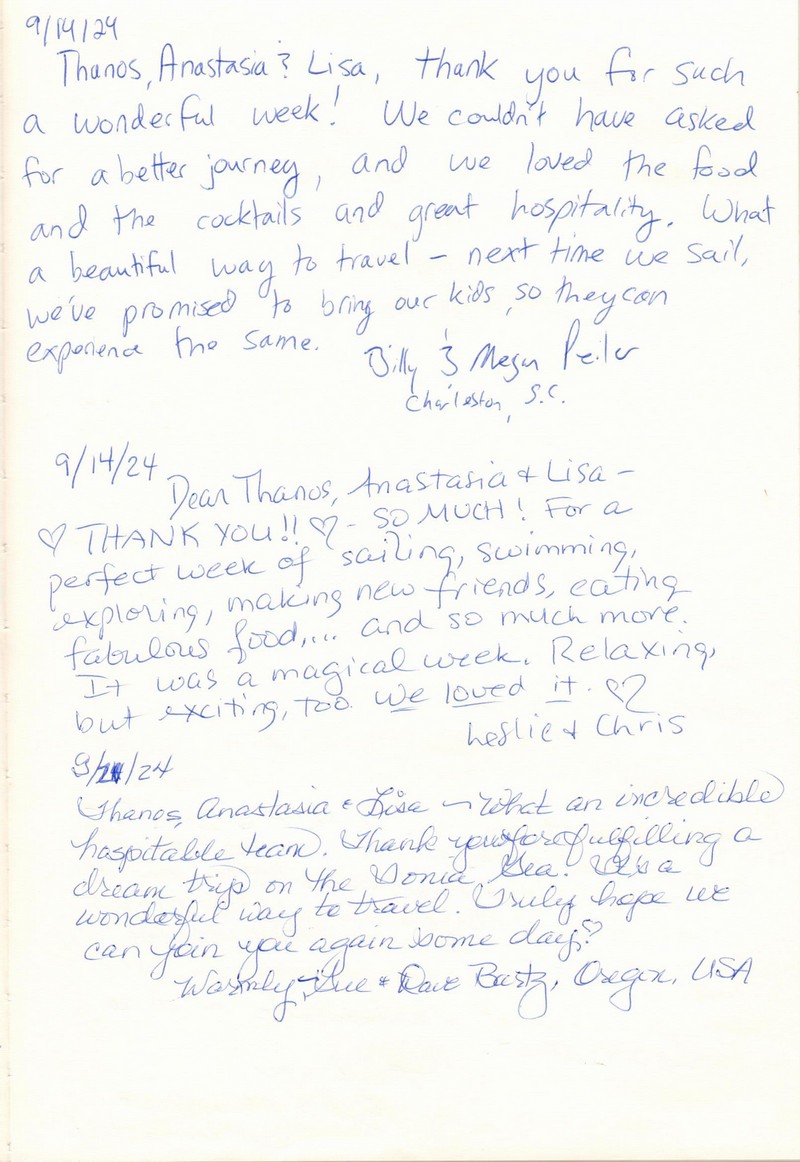 9/14/24
Thanos, Anastasia & Lisa, thank you for such
a wonderful week! We couldn't have asked
for a better journey, and we loved the food
and the cocktails and great hospitality. What
a beautiful way to travel – next time we sail,
we've promised to bring our kids, so they can
experience the same.
Billy & Megan
Charleston, S.C.
9/14/24
Dear Thanos, Anastasia & Lisa –
♡ THANK YOU!! ♡ – SO MUCH! For a
perfect week of sailing, swimming,
exploring, making new friends, eating
fabulous food,... and so much more.
It was a magical week. Relaxing,
but exciting, too. We loved it. ♡
Leslie & Chris
9/21/24
Thanos, Anastasia & Lisa – What an incredible
hospitable team. Thank you for fulfilling a
dream trip on the Ionian Sea. It's a
wonderful way to travel. Truly hope we
can join you again some day! ♡
Warmly, Sue & Dave Bartz, Oregon, USA